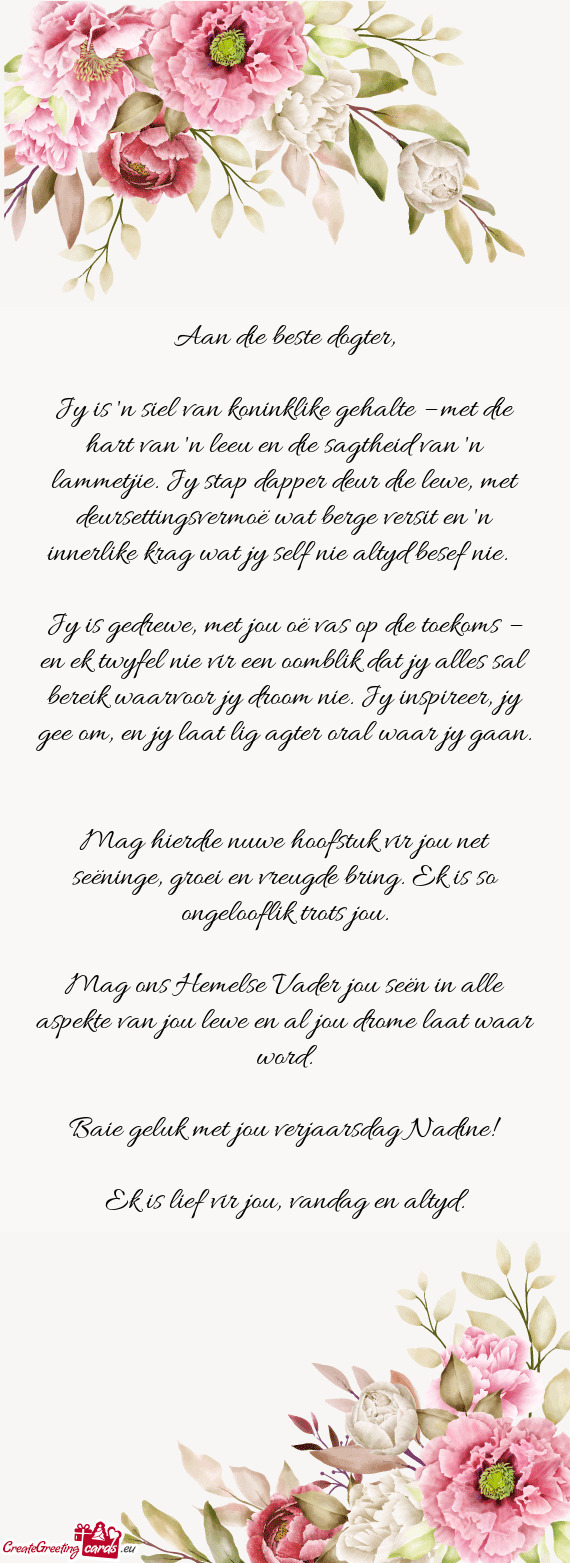 Aan die beste dogter,
Jy is 'n siel van koninklike gehalte – met die
hart van 'n leeu en die sagtheid van 'n
lammetjie. Jy stap dapper deur die lewe, met
deursettingsvermoë wat berge versit en 'n
innerlike krag wat jy self nie altyd besef nie.
Jy is gedrewe, met jou oë vas op die toekoms –
en ek twyfel nie vir een oomblik dat jy alles sal
bereik waarvoor jy droom nie. Jy inspireer, jy
gee om, en jy laat lig agter oral waar jy gaan.
Mag hierdie nuwe hoofstuk vir jou net
seëninge, groei en vreugde bring. Ek is so
ongelooflik trots jou.
Mag ons Hemelse Vader jou seën in alle
aspekte van jou lewe en al jou drome laat waar
word.
Baie geluk met jou verjaarsdag Nadine!
Ek is lief vir jou, vandag en altyd.
CreateGreeting cards .eu